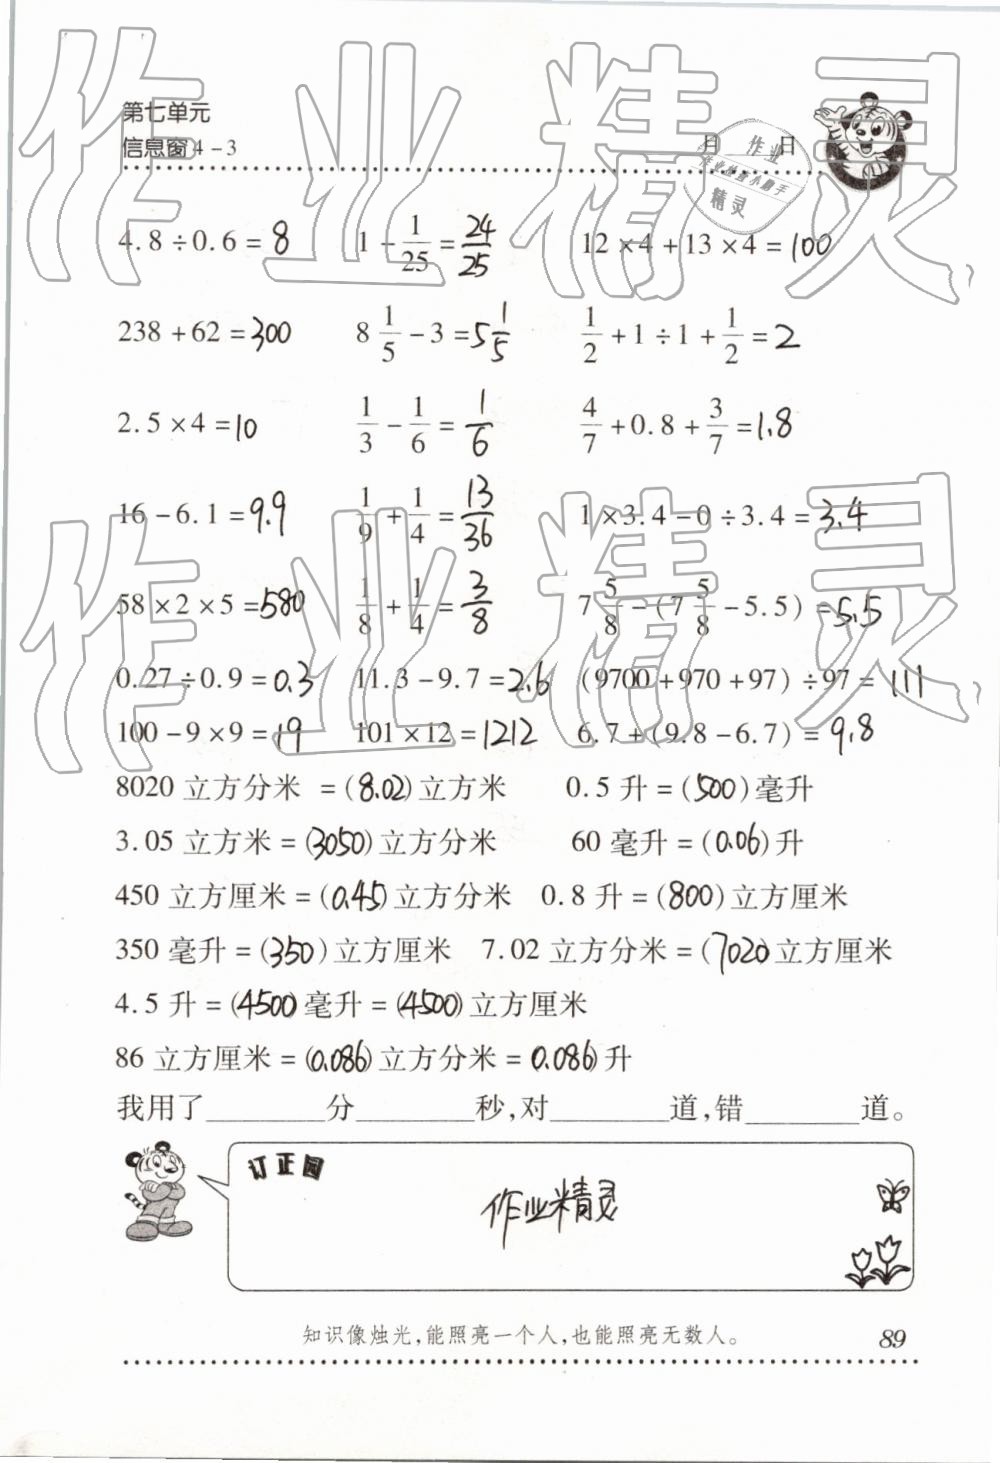 第七单元
信息窗4-3 月 日
作业精灵
作业
作业检查小助手
精灵
4.8÷0.6=8 1-1/25=24/25 12×4+13×4=100
238+62=300 8 1/5-3=5 1/5 1/2+1÷1+1/2=2
2.5×4=10 1/3-1/6=1/6 4/7+0.8+3/7=1.8
16-6.1=9.9 1/9+1/4=13/36 1×3.4-0÷3.4=3.4
作业精灵
58×2×5=580 1/8+1/4=3/8 7 5/8-(7 5/8-5.5)=5.5
0.27÷0.9=0.3 11.3-9.7=2.6 (9700+970+97)÷97=111
100-9×9=19 101×12=1212 6.7+(9.8-6.7)=9.8
8020立方分米 =(8.02)立方米 0.5升=(500)毫升
3.05立方米=(3050)立方分米 60毫升=(0.06)升
450立方厘米=(0.45)立方分米 0.8升=(800)立方厘米
350毫升=(350)立方厘米 7.02立方分米=(7020)立方厘米
4.5升=(4500)毫升=(4500)立方厘米
86立方厘米=(0.086)立方分米=0.086)升
我用了____分____秒,对____道,错____道。
订正园
作业精灵
知识像烛光,能照亮一个人,也能照亮无数人。
89